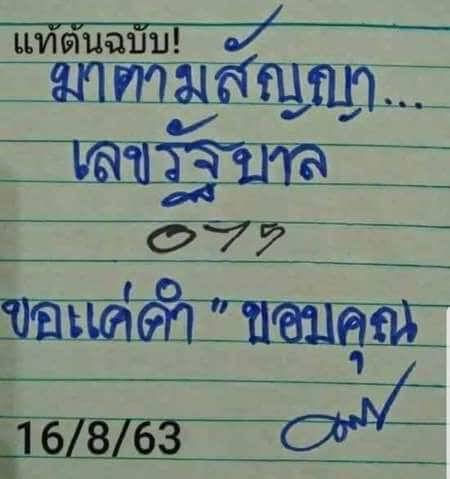 แท้ต้นฉบับ!
มาตามสัญญา...
เลขรัฐบาล
ขอแค่คำ " ขอบคุณ
16/8/63